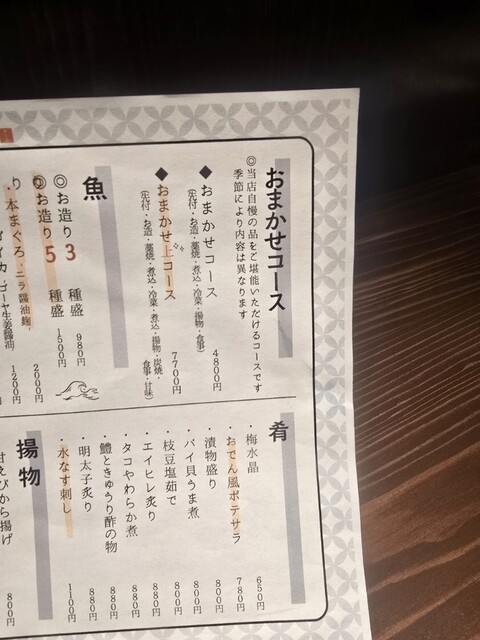 おまかせコース
◎当店自慢の品をご堪能いただけるコースです
季節により内容は異なります
◆おまかせコース 4800円
(先付・お造・藁焼・煮込・冷菜・揚物・食事)
◆おまかせ上コース 7700円
(先付・お造・藁焼・煮込・冷菜・煮込・揚物・炭焼・食事・甘味)
魚
◎お造り3種盛 980円
◎お造り5種盛 1500円
・本まぐろ・ニラ醤油麹 2000円
ゴーヤ生姜醤油 1200円
肴
・梅水晶 650円
・おでん風ポテサラ 780円
・漬物盛り 800円
・バイ貝うま煮 800円
・枝豆塩茹で 800円
・エイヒレ炙り 880円
・タコやわらか煮 880円
・鱧ときゅうり酢の物 880円
・明太子炙り 880円
・水なす刺し 1100円
揚物
甘えびから揚げ 800円